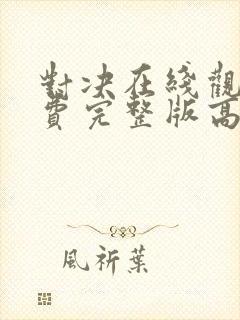 對决在綫觀
費完整版高
風祈葉